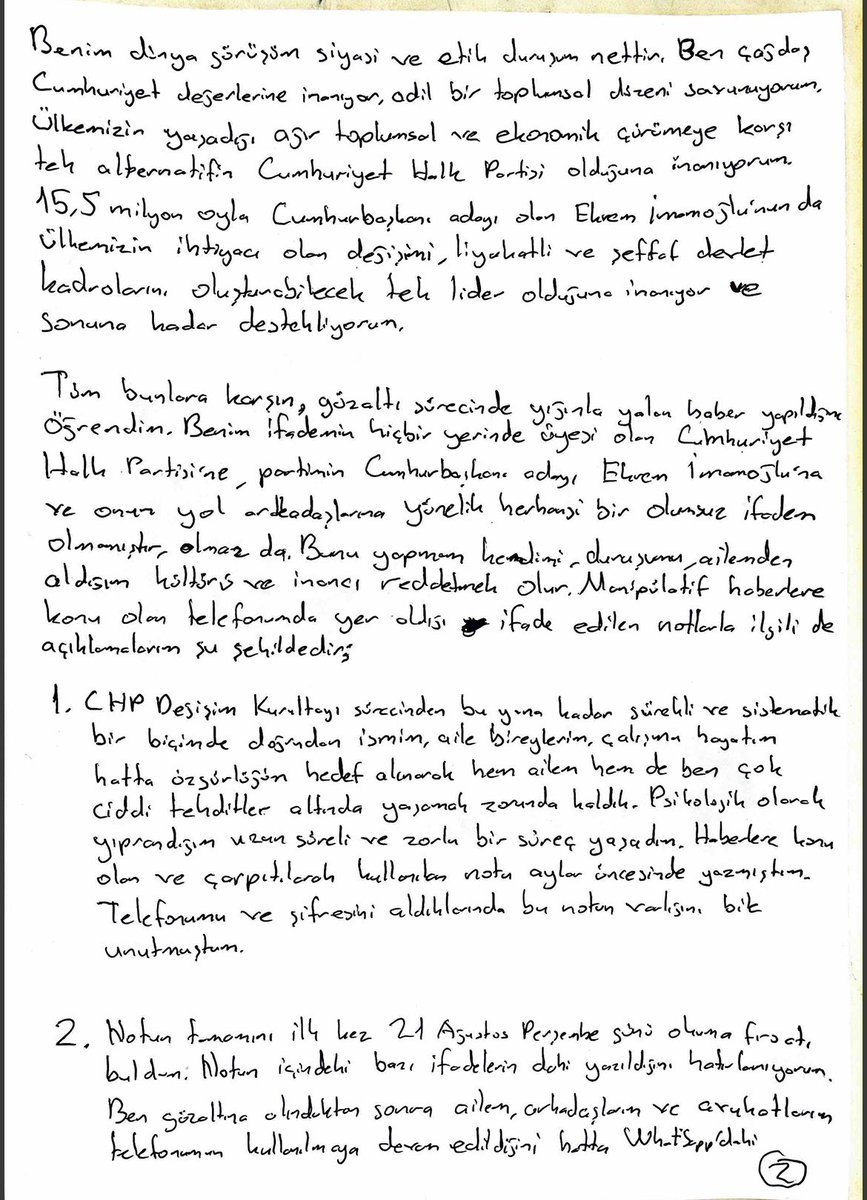 Benim dünya görüşüm siyasi ve etik duruşum nettir. Ben çağdaş
Cumhuriyet değerlerine inanıyor, adil bir toplumsal düzeni savunuyorum.
Ülkemizin yaşadığı ağır toplumsal ve ekonomik çürümeye karşı
tek alternatifin Cumhuriyet Halk Partisi olduğuna inanıyorum.
15,5 milyon oyla Cumhurbaşkanı adayı olan Ekrem İmamoğlu'nun da
ülkemizin ihtiyacı olan değişimi, liyakatli ve şeffaf devlet
kadrolarını oluşturabilecek tek lider olduğuna inanıyor ve
sonuna kadar destekliyorum.
Tüm bunlara karşın, gözaltı sürecinde yığınla yalan haber yapıldığını
öğrendim. Benim ifademin hiçbir yerinde üyesi olan Cumhuriyet
Halk Partisi'ne, partimin Cumhurbaşkanı adayı Ekrem İmamoğlu'na
ve onun yol arkadaşlarına yönelik herhangi bir olumsuz ifadem
olmamıştır, olmaz da. Bunu yapmam kendimi, duruşumu, ailemden
aldığım kültürü ve inancı reddetmek olur. Manipülatif haberlere
konu olan telefonumda yer aldığı ifade edilen notlarla ilgili de
açıklamalarım şu şekildedir;
1. CHP Değişim Kurultayı sürecinden bu yana kadar sürekli ve sistematik
bir biçimde doğrudan ismim, aile bireylerim, çalışma hayatım
hatta özgürlüğüm hedef alınarak hem ailem hem de ben çok
ciddi tehditler altında yaşamak zorunda kaldık. Psikolojik olarak
yıprandığım uzun süreli ve zorlu bir süreç yaşadım. Haberlere konu
olan ve çarpıtılarak kullanılan notu aylar öncesinde yazmıştım.
Telefonumu ve şifresini aldıklarında bu notun varlığını bile
unutmuştum.
2. Notun tamamını ilk kez 21 Ağustos Perşembe günü okuma fırsatı
buldum. Notun içindeki bazı ifadelerin dahi yazıldığını hatırlamıyorum.
Ben gözaltına alındıktan sonra ailem, arkadaşlarım ve avukatlarım
telefonumun kullanılmaya devam edildiğini hatta WhatSapp'daki
2